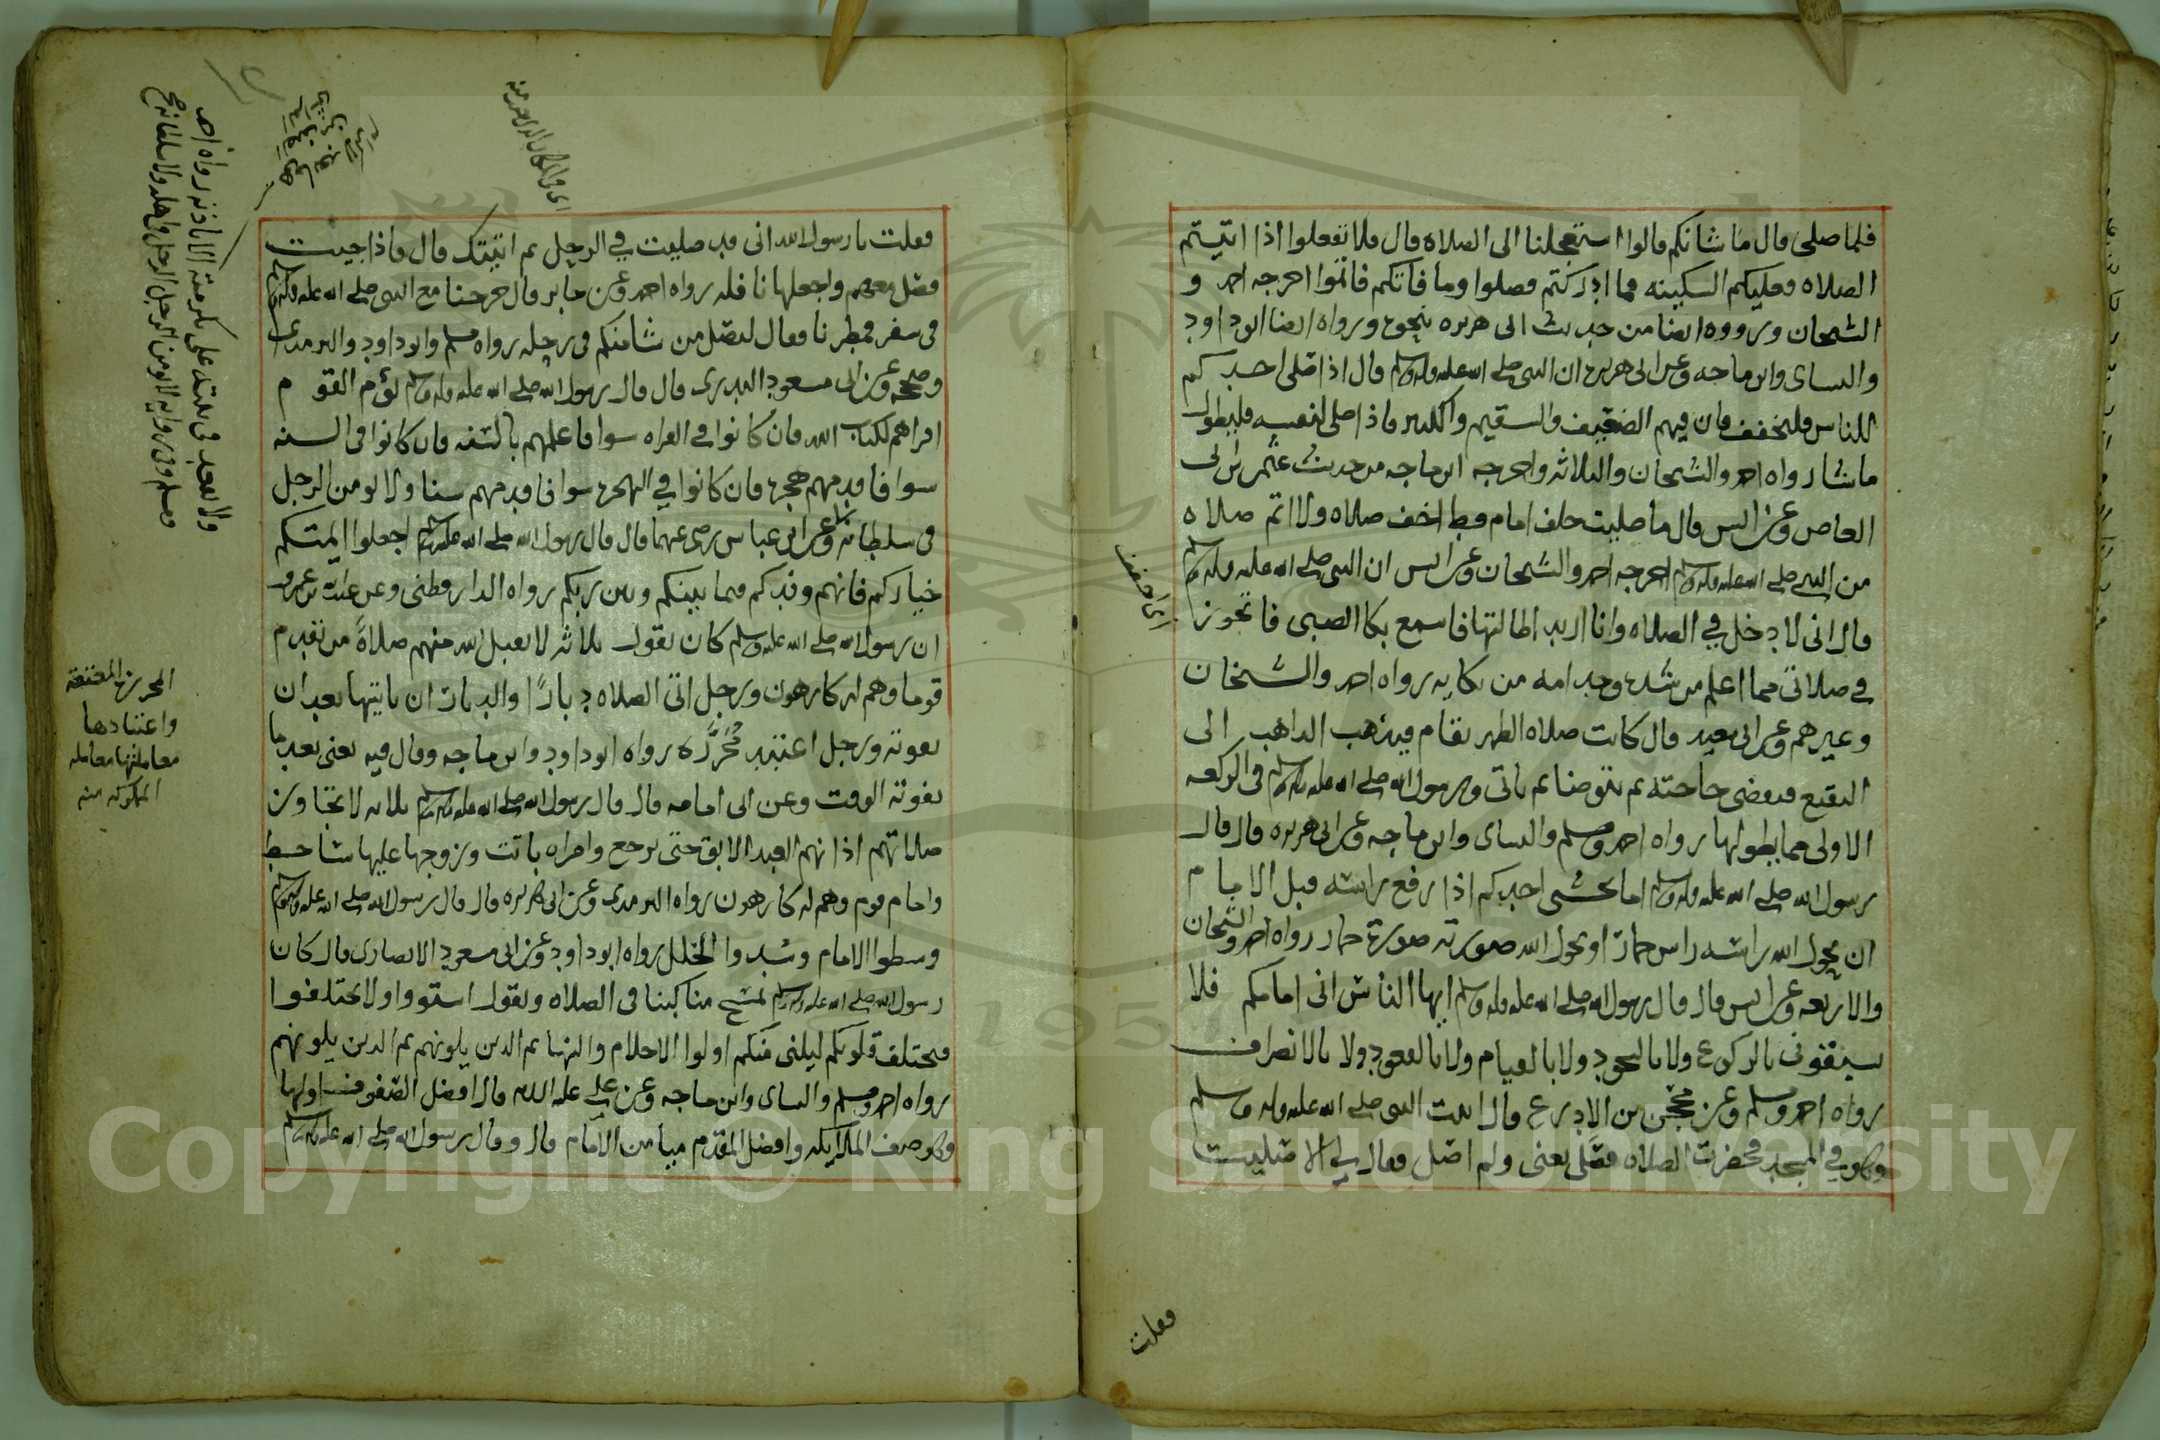 فلما صلى قال ما شانكم قالوا استعجلنا الى الصلاه قال فلا تفعلوا اذا اتيتم
الصلاه فعليكم السكينه فما ادركتم فصلوا وما فاتكم فاتموا اخرجه احمد و
الشيخان ورووه ايضا من حديث ابى هريره بنحوه ورواه ايضا ابوداود
والنساى وابن ماجه وعن ابى هريره ان النبى صلى الله عليه واله وسلم قال اذا صلى احدكم
للناس فليخفف فان فيهم الضعيف والسقيم والكبير فاذا صلى لنفسه فليطول
ما شا رواه احمد والشيخان والثلاثه واخرجه ابن ماجه من حديث عثمن بن ابى
العاص وعن انس قال ما صليت خلف امام قط اخف صلاه ولا اتم صلاه
من النبى صلى الله عليه واله وسلم اخرجه احمد والشيخان وعن انس ان النبى صلى الله عليه واله وسلم
قال انى لادخل في الصلاه وانا اريد اطالتها فاسمع بكا الصبى فاتجوز
في صلاتى مما اعلم من شده وجد امه من بكايه رواه احمد والشيخان
وغيرهم وعن ابى سعيد قال كانت صلاه الظهر تقام فيذهب الذاهب الى
البقيع فيقضى حاجته ثم يتوضا ثم ياتى ورسول الله صلى الله عليه واله وسلم فى الركعه
الاولى مما يطولها رواه احمد ومسلم والنساى وابن ماجه وعن ابى هريره قال قال
رسول الله صلى الله عليه واله وسلم اما يخشى احدكم اذا رفع راسه قبل الامام
ان يحول الله راسه راس حمار او يحول الله صورته صورة حمار رواه احمد والشيخان
والاربعه وعن انس قال قال رسول الله صلى الله عليه واله وسلم ايها الناس انى امامكم فلا
تسبقونى بالركوع ولا بالسجود ولا بالقيام ولا بالقعود ولا بالانصراف
رواه احمد ومسلم وعن محجن بن الادرع قال اتيت النبى صلى الله عليه واله وسلم
وهو في المسجد فحضرت الصلاه فصلى يعنى ولم اصل فقال لي الا صليت
اى اخفف
فقلت
فقلت يا رسول الله انى قد صليت في الرحل ثم اتيتك قال فاذا جيت
فصل معهم واجعلها نافله رواه احمد وعن جابر قال خرجنا مع النبى صلى الله عليه واله وسلم
فى سفر فمطرنا فقال ليصل من شا منكم فى رحله رواه مسلم وابوداود والترمذى
وصححه وعن ابى مسعود البدرى قال قال رسول الله صلى الله عليه واله وسلم يؤم القوم
اقراهم لكتاب الله فان كانوا في القراه سوا فاعلمهم بالسنه فان كانوا فى السنه
سوا فاقدمهم هجره فان كانوا في الهجره سوا فاقدمهم سنا ولا يومن الرجل
فى سلطانه وعن ابن عباس رضى عنهما قال قال رسول الله صلى الله عليه واله وسلم اجعلوا ايمتكم
خياركم فانهم وفدكم فيما بينكم وبين ربكم رواه الدارقطنى وعن عبدالله بن عمرو
ان رسول الله صلى الله عليه وسلم كان يقول ثلاثه لا يقبل الله منهم صلاة من تقدم
قوما وهم له كارهون ورجل اتى الصلاه دبارًا والدبار ان ياتيها بعد ان
تفوته ورجل اعتبد محرره رواه ابوداود وابن ماجه وقال فيه يعنى بعد ما
يفوته الوقت وعن ابى امامه قال قال رسول الله صلى الله عليه واله وسلم ثلاثه لا تجاوز
صلاتهم اذانهم العبد الابق حتى يرجع وامراه باتت وزوجها عليها ساخط
وامام قوم وهم له كارهون رواه الترمذى وعن ابى هريره قال قال رسول الله صلى الله عليه واله وسلم
وسطوا الامام وسدوا الخلل رواه ابو داود وعن ابى مسعود الانصارى قال كان
رسول الله صلى الله عليه واله وسلم يمسح مناكبنا فى الصلاه ويقول استووا ولا تختلفوا
فتختلف قلوبكم ليلنى منكم اولوا الاحلام والنها ثم الذين يلونهم ثم الذين يلونهم
رواه احمد ومسلم والنساى وابن ماجه وعن علي عليه السلام قال افضل الصفوف اولها
وهو صف الملايكه وافضل المقدم ميامن الامام قال وقال رسول الله صلى الله عليه واله وسلم
ولا يقعد فى بيته على تكرمته الا باذنه رواه احمد
ومسلم وفى روايه لا يومن الرجل الرجل فى اهله ولا سلطانه
المحرره المعتقه
واعتبادها
معاملتها معامله
المملوكه منه
Copyright © King Saud University
1957